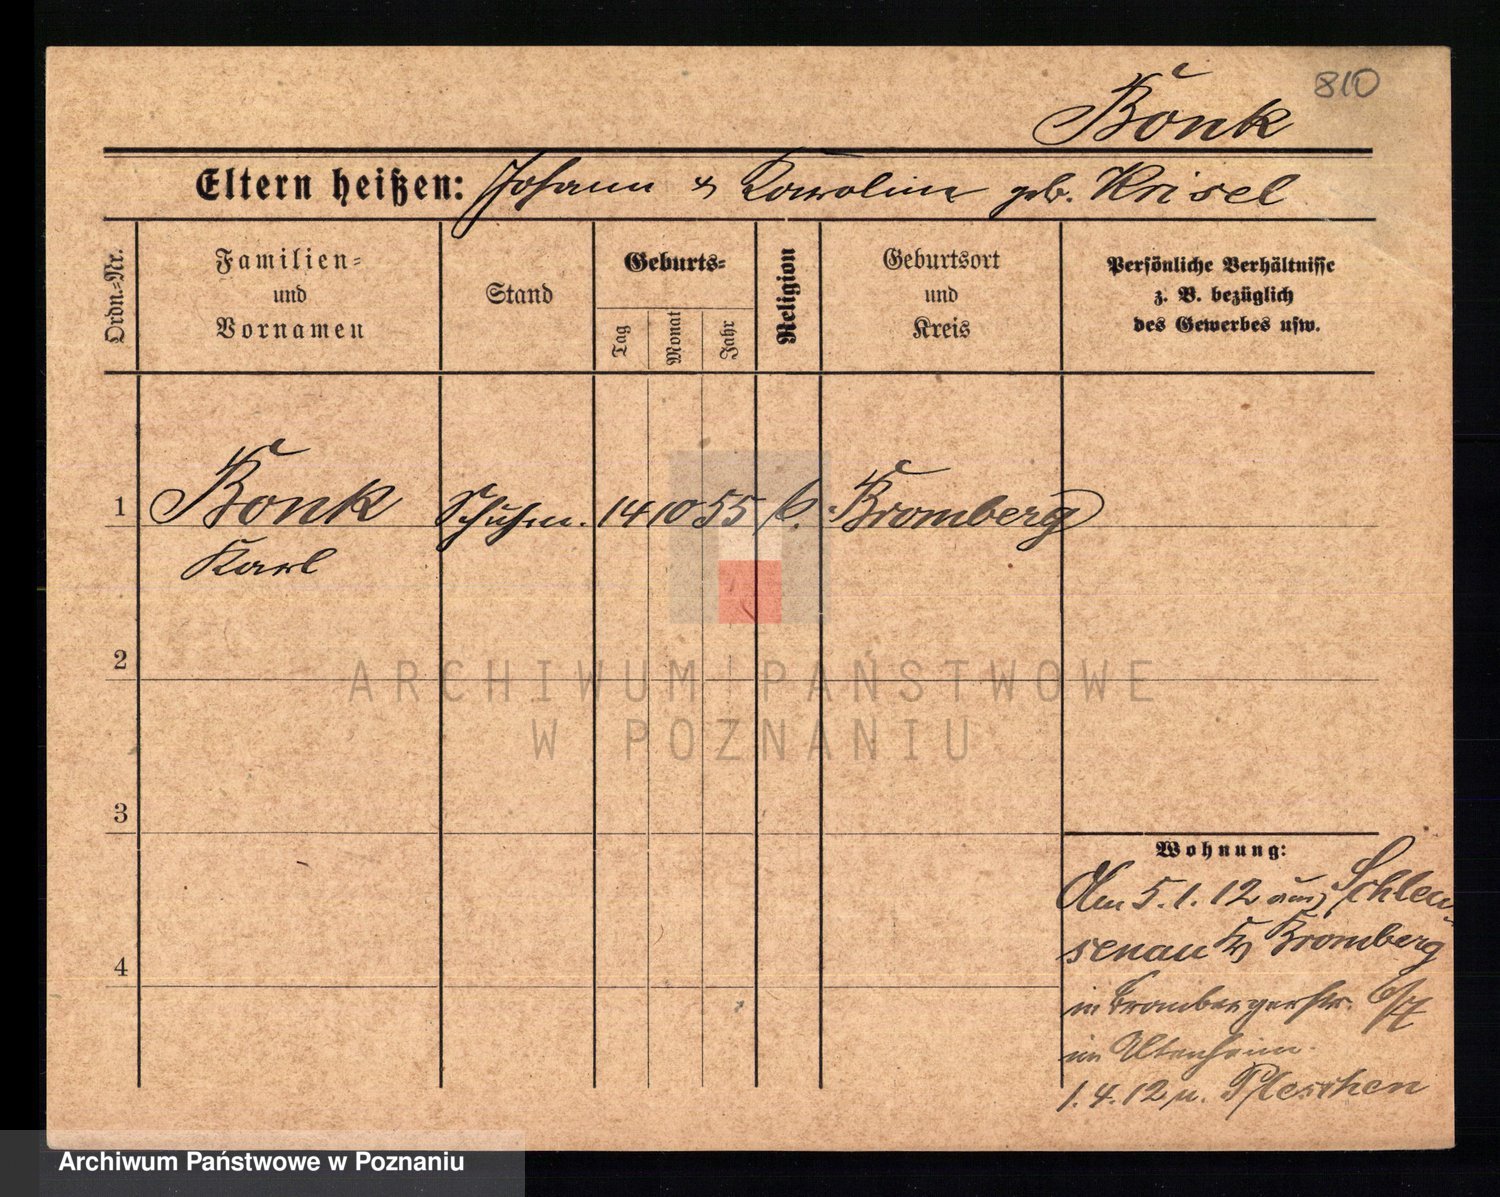 810
Bonk
Eltern heißen: Johann & Karoline geb. Krisel
Ordn.-Nr.
Familien-
und
Vornamen
Stand
Geburts-
Tag
Monat
Jahr
Religion
Geburtsort
und
Kreis
Persönliche Verhältnisse
z. B. bezüglich
des Gewerbes usw.
1 Bonk Schuhm. 14 10 55 k. Bromberg
Karl
2
3
4
Wohnung:
Am 5.1.12 aus Schleu-
senau Bromberg
in Brombergerstr.
im
1.4.12 n. Pleschen
ARCHIWUM PAŃSTWOWE
W POZNANIU
Archiwum Państwowe w Poznaniu